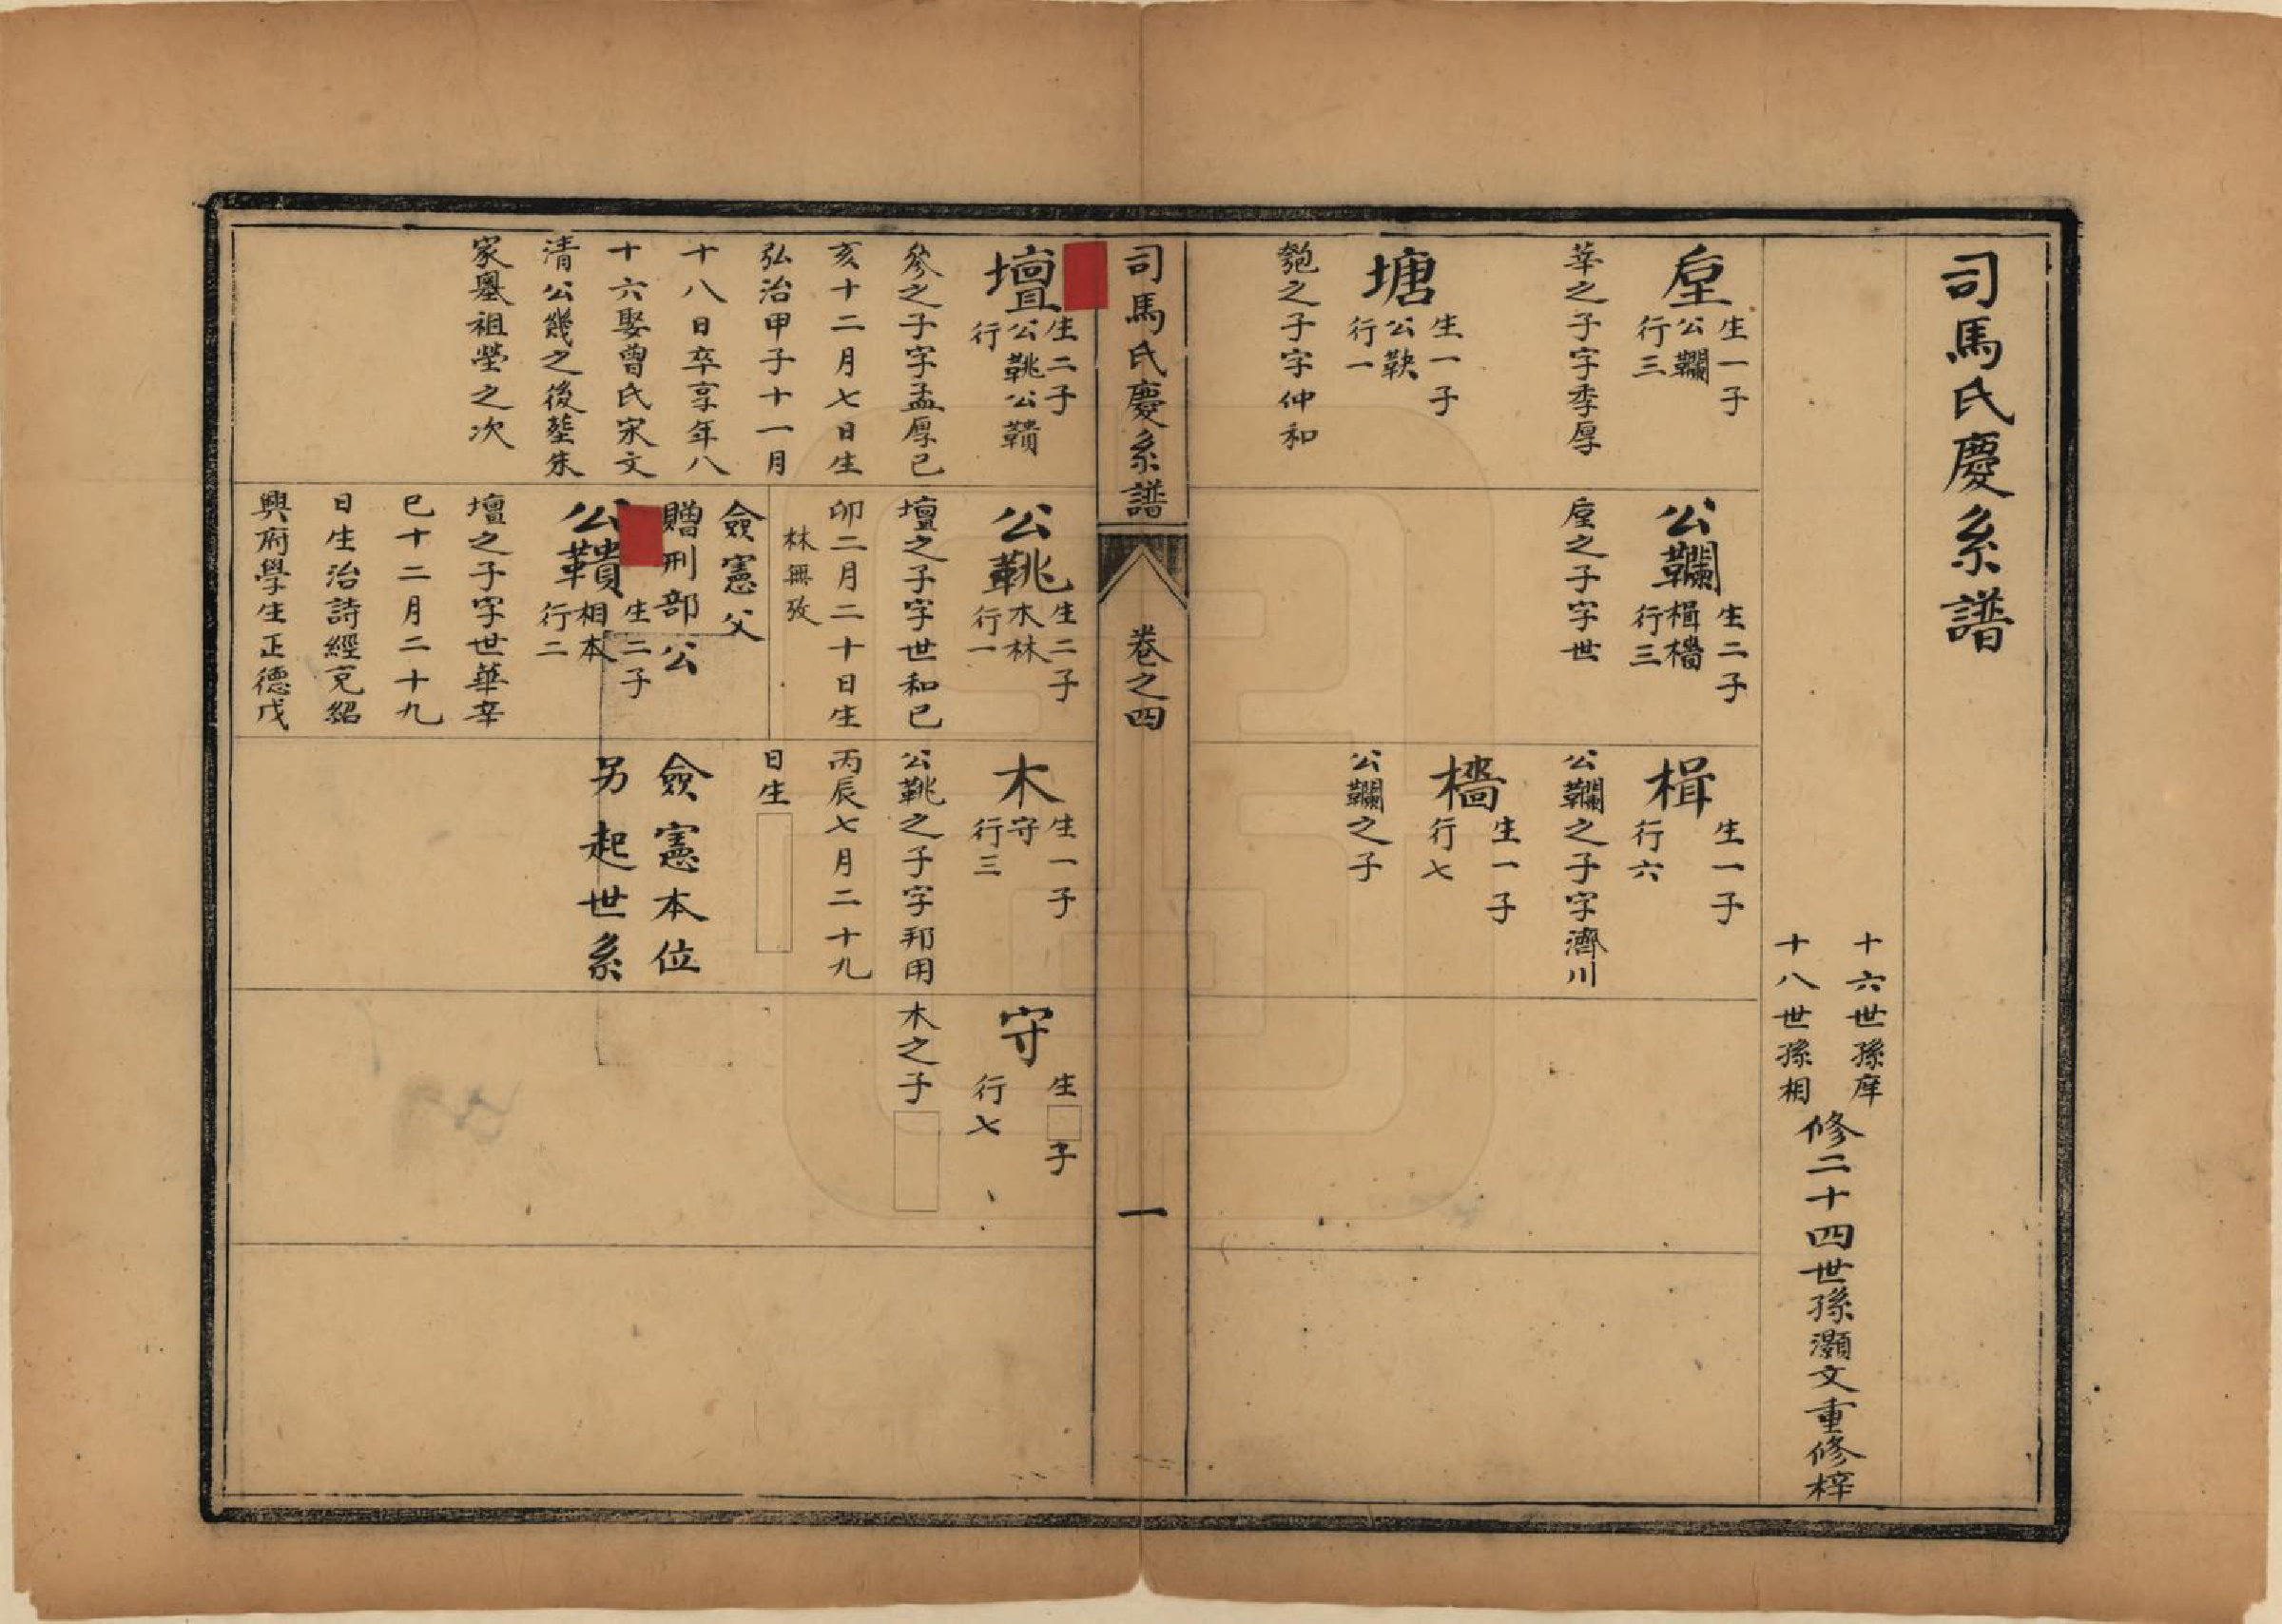 司馬氏慶系譜
十六世孫庠
十八世孫相
修二十四世孫灝文重修梓
垕
生一子
公韊
行三
華之子字季厚
塘
生一子
公鞅
行一
之子字仲和
公韊
生二子
楫檣
行三
垕之子字世
楫
生一子
行六
公韊之子字濟川
檣
生一子
行七
公韊之子
司馬氏慶系譜
卷之四
一
壇
生二子
公鞉公鞼
行
參之子字孟厚己
亥十二月七日生
弘治甲子十一月
十八日卒享年八
十六娶曾氏宋文
清公幾之後塟朱
家墺祖塋之次
公鞉
生二子
木林
行一
壇之子字世和己
卯二月二十日生
林無攷
僉憲父
贈刑部公
公鞼
生二子
相本
行二
壇之子字世華辛
巳十二月二十九
日生治詩經充紹
興府學生正德戊
木
生一子
守
行三
公鞉之子字邦用
丙辰七月二十九
日生
僉憲本位
另起世系
守
生 子
行七
木之子